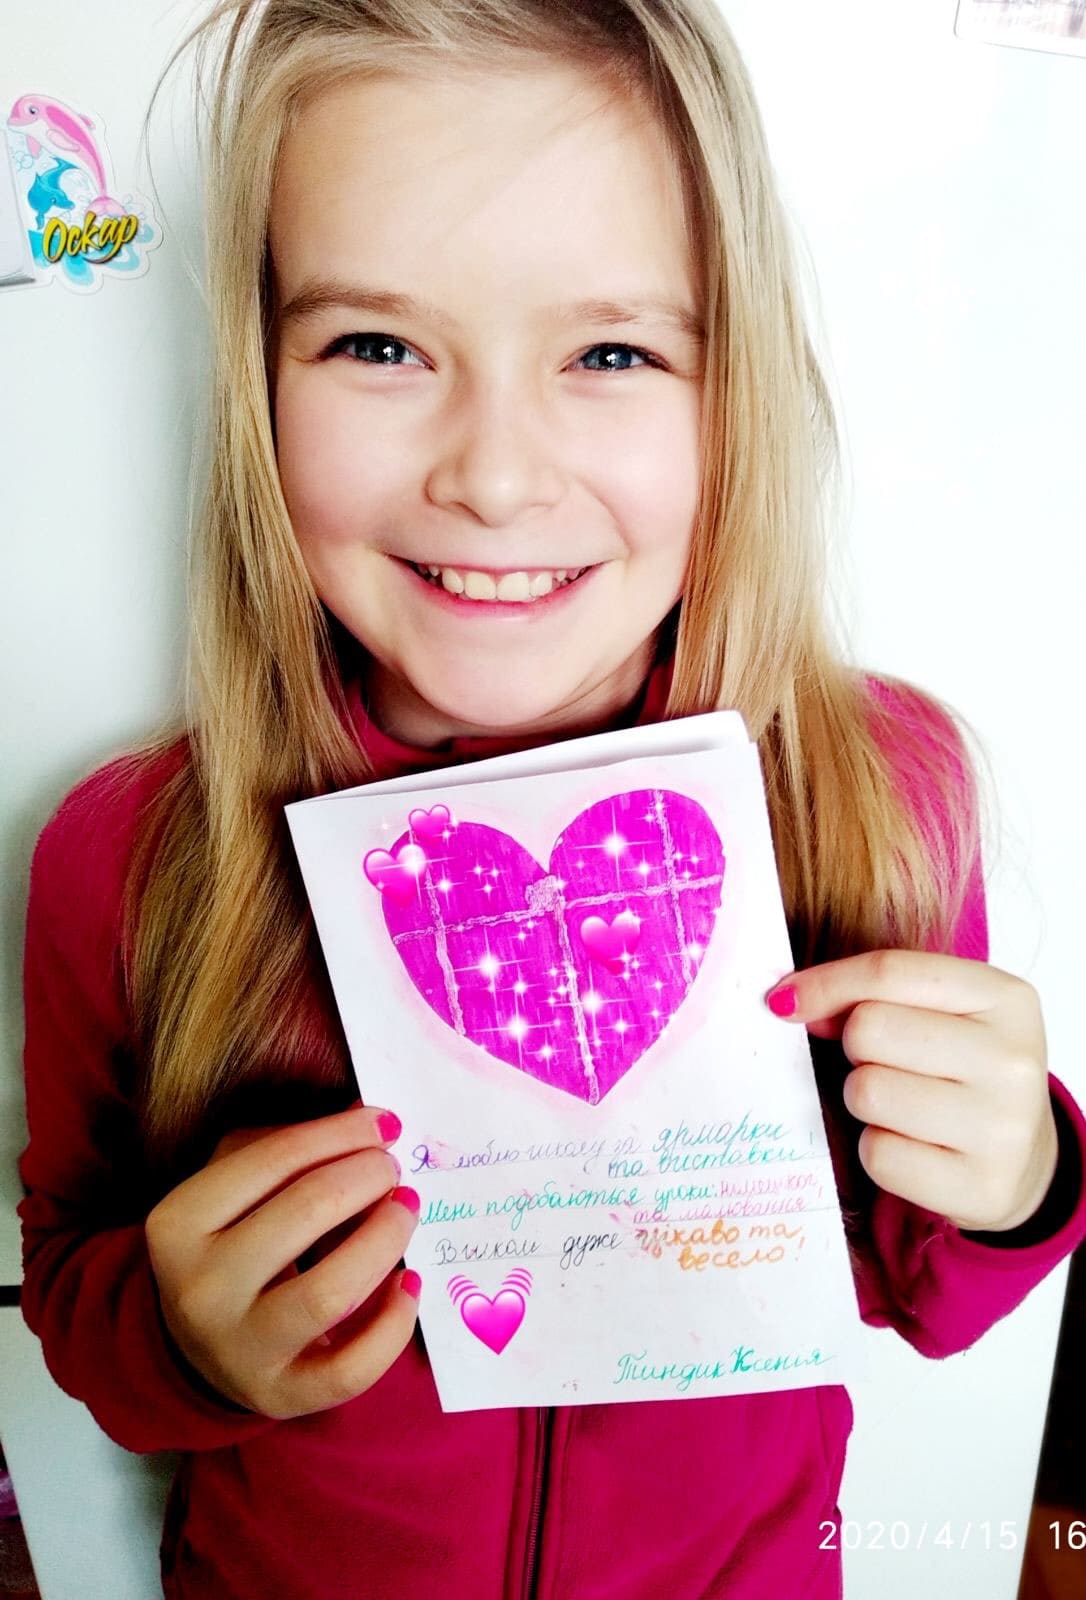 Оскар
Я люблю школу за ярмарки
та виставки!
Мені подобаються уроки: німецької,
та малювання
В школі дуже цікаво та
весело!
Тиндик Ксенія
2020/4/15 16